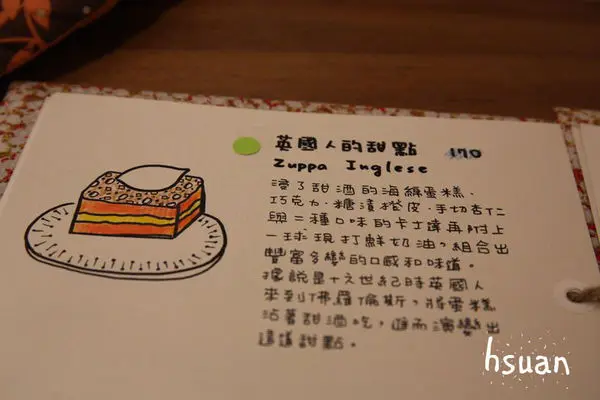 英國人的甜點 170
Zuppa Inglese
浸了甜酒的海綿蛋糕、
巧克力、糖漬橙皮、手切杏仁
與二種口味的卡士達再附上
一球現打鮮奶油，組合出
豐富多變的口感和味道。
據說是十六世紀時英國人
來到佛羅倫斯，將蛋糕
沾著甜酒吃，進而演變出
這道甜點。
hsuan